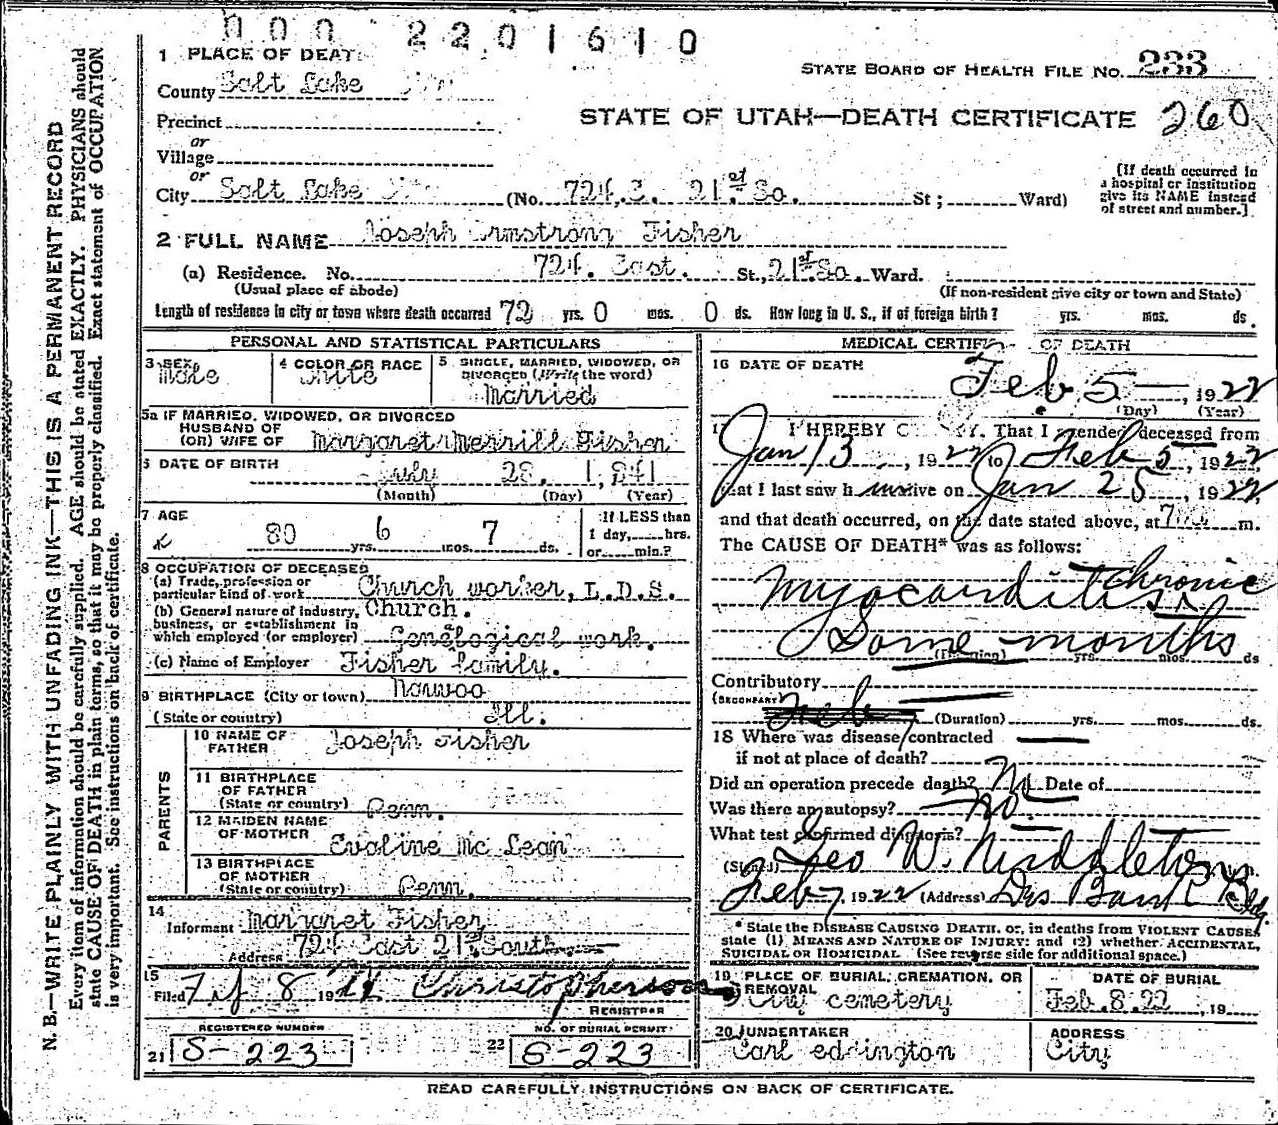 000 2201610
1 PLACE OF DEAT
STATE BOARD OF HEALTH FILE NO. 233
County Salt Lake
STATE OF UTAH—DEATH CERTIFICATE 260
Precinct
or
Village
or
City Salt Lake (No. 724 E. 21st So. St; Ward)
(If death occurred in
a hospital or institution
give its NAME instead
of street and number.)
2 FULL NAME Joseph Armstrong Fisher
(a) Residence. No. 724. East. St., 21st So. Ward.
(Usual place of abode)
(If non-resident give city or town and State)
Length of residence in city or town where death occurred 72 yrs. 0 mos. 0 ds. How long in U. S., if of foreign birth? yrs. mos. ds.
PERSONAL AND STATISTICAL PARTICULARS
3 SEX Male
4 COLOR OR RACE White
5 SINGLE, MARRIED, WIDOWED, OR
DIVORCED (Write the word)
Married
5a IF MARRIED, WIDOWED, OR DIVORCED
HUSBAND OF
(OR) WIFE OF Margaret Merrill Fisher
6 DATE OF BIRTH July 28, 1,841
(Month) (Day) (Year)
7 AGE 80 yrs. 6 mos. 7 ds.
If LESS than
1 day, hrs.
or min.?
8 OCCUPATION OF DECEASED
(a) Trade, profession or
particular kind of work Church worker, L.D.S.
(b) General nature of industry, Church.
business, or establishment in
which employed (or employer) Genelogical work.
(c) Name of Employer Fisher family.
9 BIRTHPLACE (City or town) Nauvoo
(State or country) Ill.
PARENTS
10 NAME OF
FATHER Joseph Fisher
11 BIRTHPLACE
OF FATHER
(State or country) Penn.
12 MAIDEN NAME
OF MOTHER Evaline Mc Lean
13 BIRTHPLACE
OF MOTHER
(State or country) Penn.
14
Informant Margaret Fisher
Address 724 East 21st South
15
Filed 8 1922 Christopherson
REGISTRAR
REGISTERED NUMBER
21 S-223
NO. OF BURIAL PERMIT
22 G-223
MEDICAL CERTIFI OF DEATH
16 DATE OF DEATH
Feb 5 — , 1922
(Day) (Year)
17 I HEREBY C Y, That I attended deceased from
Jan 13, 1922 to Feb 5, 1922
that I last saw h im alive on Jan 25, 1922
and that death occurred, on the date stated above, at m.
The CAUSE OF DEATH* was as follows:
Myocarditis chronic
Some months
(Duration) yrs. mos. ds
Contributory
(SECONDARY)
(Duration) yrs. mos. ds.
18 Where was disease contracted
if not at place of death?
Did an operation precede death? No Date of
Was there an autopsy? No
What test confirmed diagnosis?
(Signed) Geo W. Middleton
Feb 7, 1922 (Address) Des Bank Bldg
* State the DISEASE CAUSING DEATH, or, in deaths from VIOLENT CAUSES
state (1) MEANS AND NATURE OF INJURY: and (2) whether ACCIDENTAL,
SUICIDAL OR HOMICIDAL (See reverse side for additional space.)
19 PLACE OF BURIAL, CREMATION, OR
REMOVAL
City cemetery
DATE OF BURIAL
Feb. 8. 22, 19
20 UNDERTAKER
Carl eddington
ADDRESS
City
READ CAREFULLY INSTRUCTIONS ON BACK OF CERTIFICATE.
N. B.—WRITE PLAINLY WITH UNFADING INK—THIS IS A PERMANENT RECORD
Every item of information should be carefully supplied. AGE should be stated EXACTLY. PHYSICIANS should
state CAUSE OF DEATH in plain terms, so that it may be properly classified. Exact statement of OCCUPATION
is very important. See instructions on back of certificate.